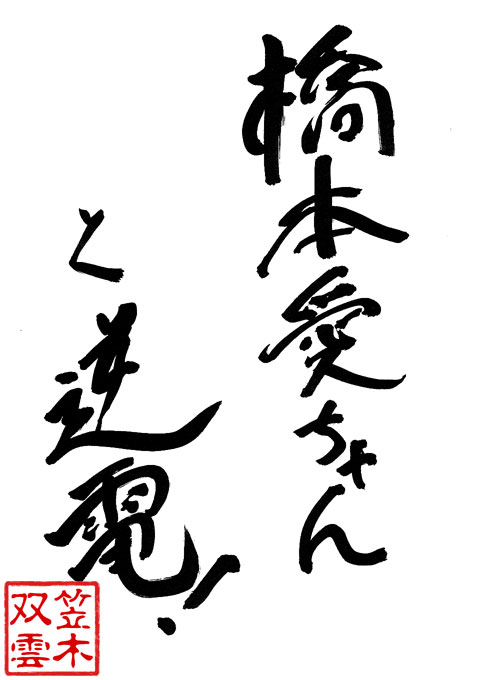 橋本愛ちゃん
と逆電!
笠木
双雲